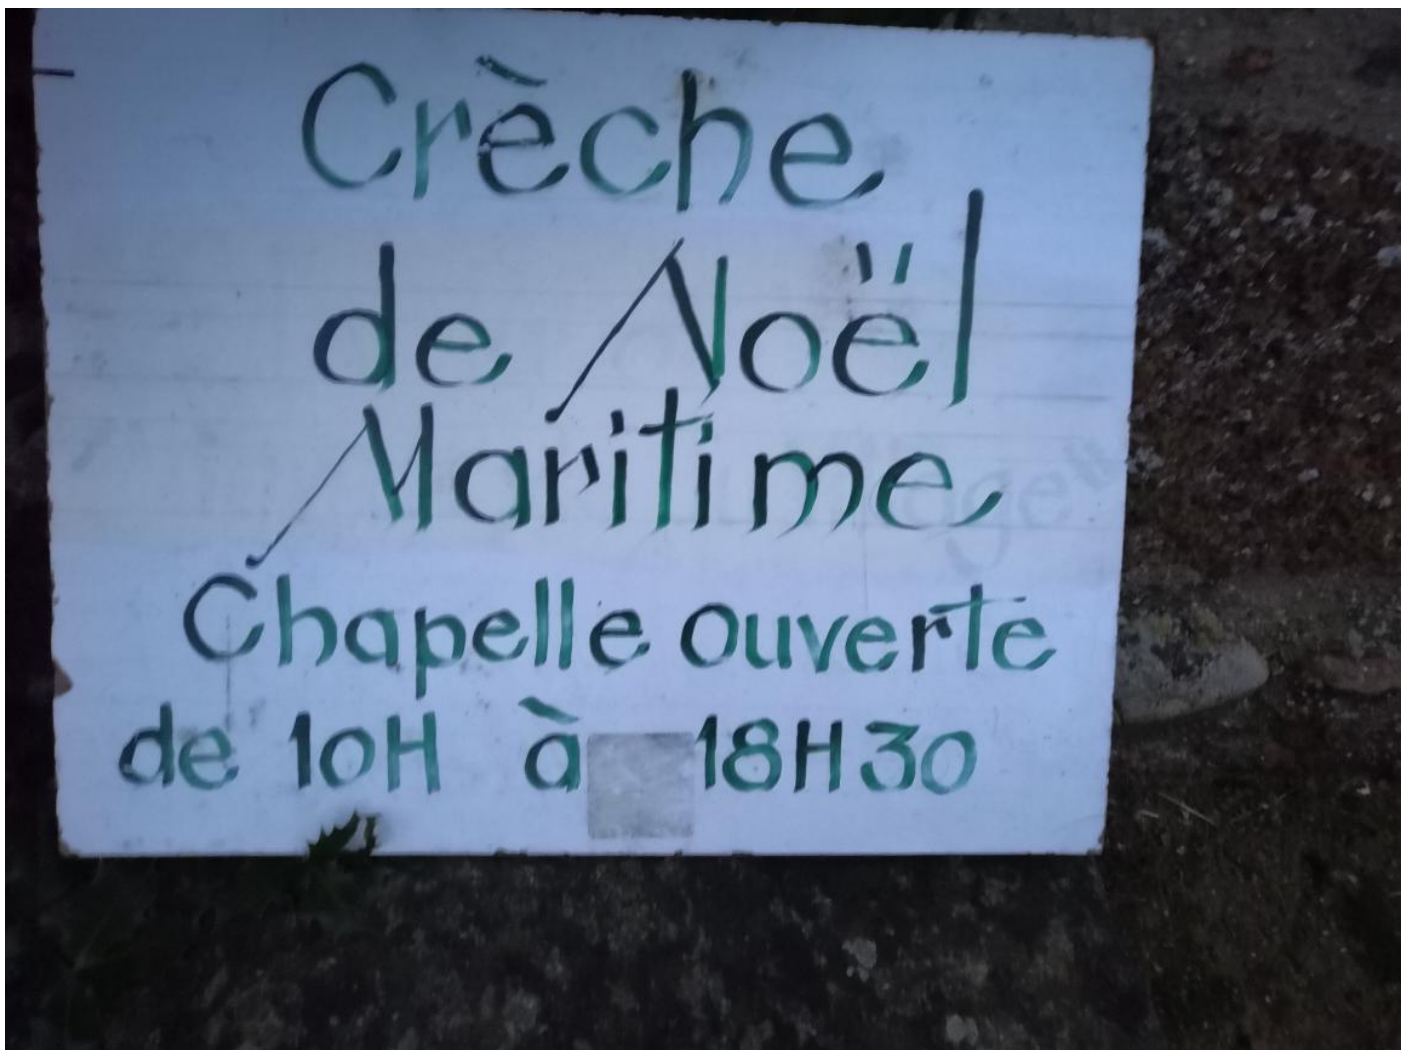 Crèche
de Noël
Maritime
Chapelle ouverte
de 10H à 18H30